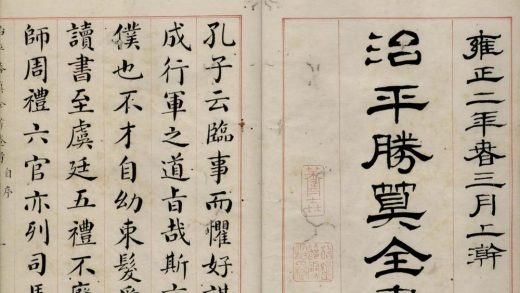 雍正二年春三月上澣
治平勝算全書
孔子云臨事而懼好謀
成行軍之道旨哉斯言
僕也不才自幼束髮受
讀書至虞廷五禮不廢
師周禮六官亦列司馬
自序